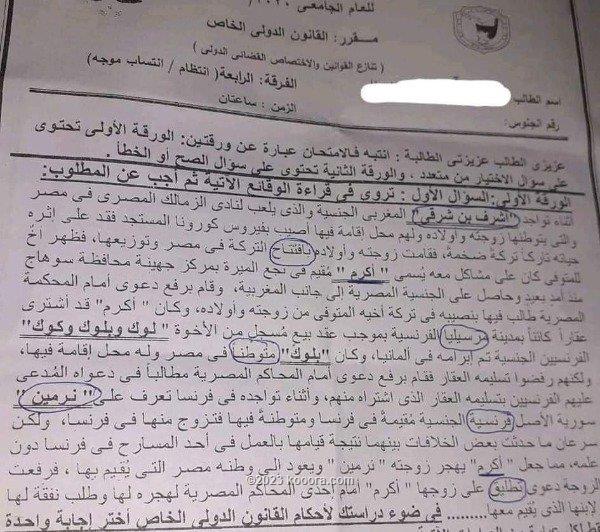 للعام الجامعى ٢٠٢٠/
مقرر: القانون الدولى الخاص
( تنازع القوانين والاختصاص القضائى الدولى )
الفرقة: الرابعة( انتظام / انتساب موجه)
اسم الطالب
الزمن: ساعتان
رقم الجلوس:
عزيزى الطالب عزيزتى الطالبة : انتبه فالامتحان عبارة عن ورقتين: الورقة الأولى تحتوى
على سؤال الاختيار من متعدد ، والورقة الثانية تحتوى على سؤال الصح أو الخطأ .
الورقة الأولى: السؤال الأول : تروى فى قراءة الوقائع الآتية ثم أجب عن المطلوب:
أثناء تواجد "أشرف بن شرقى" المغربى الجنسية والذى يلعب لنادى الزمالك المصرى فى مصر
والتى يتوطنها زوجته وأولاده ولهم محل إقامة فيها أصيب بفيروس كورونا المستجد فقد على إثره
حياته تاركاً تركة ضخمة، فقامت زوجته وأولاده بافتتاح التركة فى مصر وتوزيعها، فظهر أخٌ
للمتوفى كان على مشاكل معه يُسمى " أكرم " مُقيم فى نجع الميرة بمركز جهينة محافظة سوهاج
منذ أمد بعيد وحاصل على الجنسية المصرية إلى جانب المغربية، وقام برفع دعوى أمام المحكمة
المصرية طالب فيها بنصيبه فى تركة أخيه المتوفى من زوجته وأولاده، وكان " أكرم" قد أشترى
عقاراً كائناً بمدينة مرسيليا الفرنسية بموجب عقد بيع مُسجل من الأخوة " لوك وبلوك وكوك"
الفرنسيين الجنسية تم إبرامه فى ألمانيا، وكان "بلوك" متوطناً فى مصر وله محل إقامة فيها،
ولكنهم رفضوا تسليمه العقار فقام برفع دعوى أمام المحاكم المصرية مطالباً فى دعواه المُدعى
عليهم الفرنسيين بتسليمه العقار الذى اشتراه منهم، وأثناء تواجده فى فرنسا تعرف على " نرمين "
سورية الأصل فرنسية الجنسية مُقيمة فى فرنسا ومتوطنةً فيها فتزوج منها فى فرنسا، ولكن
سرعان ما حدثت بعض الخلافات بينهما نتيجة قيامها بالعمل فى أحد المسارح فى فرنسا دون
علمه، مما جعل " أكرم" يهجر زوجته "نرمين " ويعود إلى وطنه مصر التى يُقيم بها ، فرفعت
الزوجة دعوى تطليق على زوجها " أكرم" أمام إحدى المحاكم المصرية لهجره لها وطلب نفقة لها
ولابنها الذى يُقيم معها........ فى ضوء دراستك لأحكام القانون الدولى الخاص أختر إجابة واحدة
©2023 kooora.com